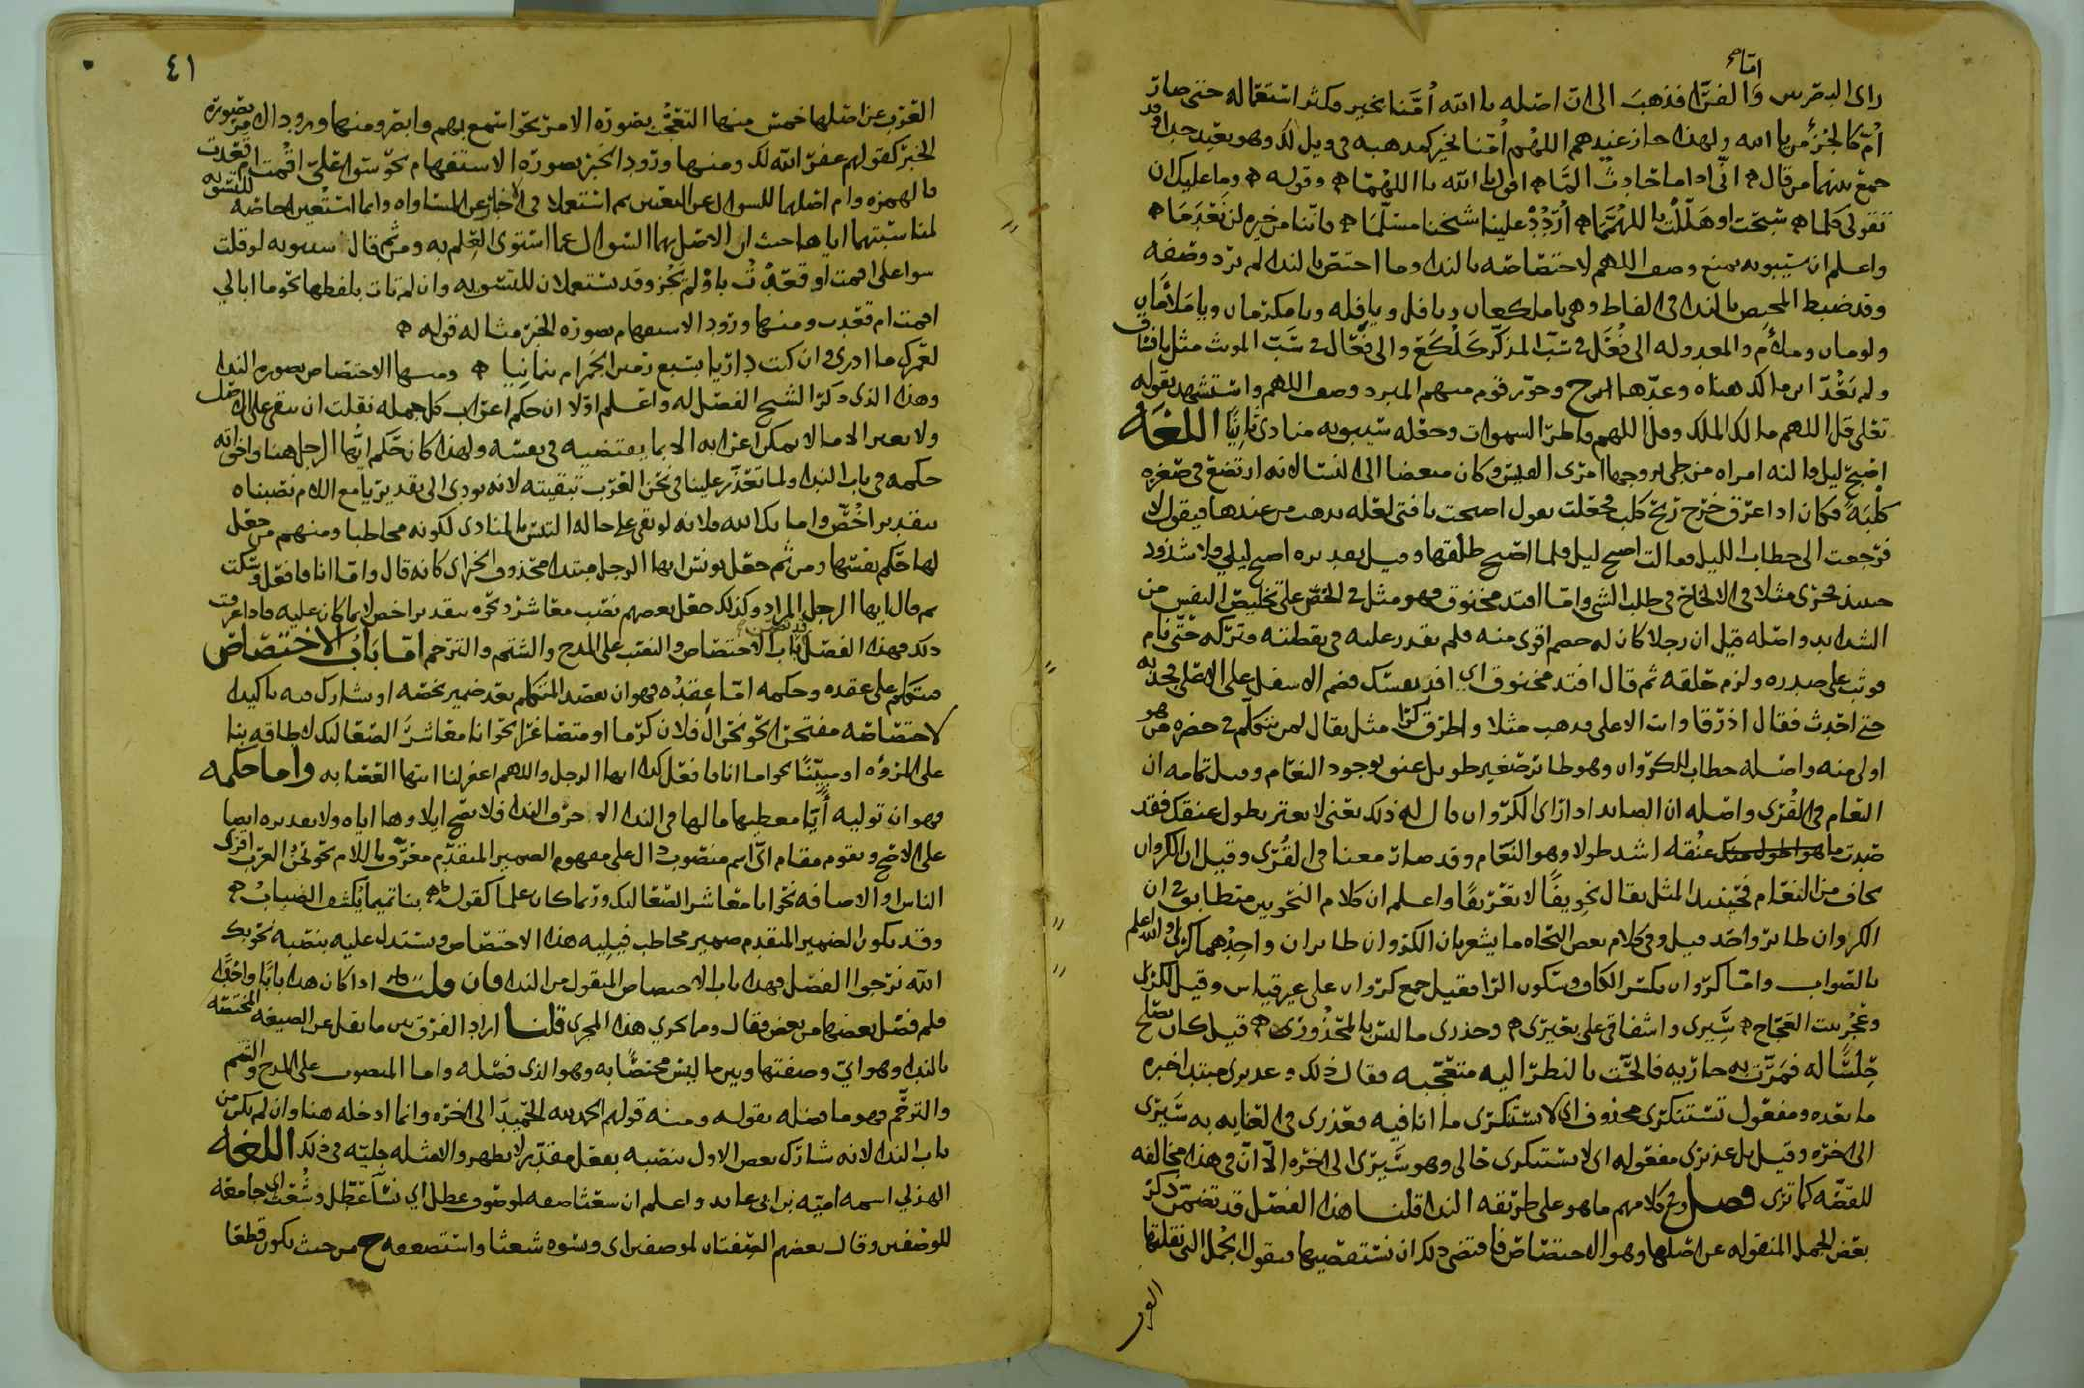 اما
راى البصريين واما الفرا فذهب الى ان اصله يا الله اُمَّنا بخير فكثر استعماله حتى صارت
اُمّ كالجزء من يا الله ولهذا جاز عندهم اللهم اُمّنا بخير كمذهبه في ويل لك وهو بعيد جدا وقد
جمع بينهما من قال انى اذا ما حادث المّا اقول يا الله يا اللهمّا وقوله وما عليك ان
تقولي كلما سبّحت او هلّلت يا اللهمّما اُرْدُدْ علينا شيخنا مسلّما فاننا من خيره لن نعدما
واعلم ان سيبويه يمنع وصف اللهم لاختصاصه بالندا وما اختص بالندا لم يرد وصفه
وقد ضبط المختص بالندا في الفاظ وهي يا ملكعان ويا فل ويا فله ويا مكرمان ويا ملأمان
ولومان وملأم والمعدوله الى فُعَل في سبّ المذكر كلُكَع والى فَعَال في سبّ المونث مثل يا فساق
ولم يعدّ ابن مالك هناه وعدّها وجوّز قوم منهم المبرد وصف اللهم واستشهد بقوله
تعلى قل اللهم مالك الملك وقل اللهم فاطر السموات وجعله سيبويه منادى ثانيًا اللغه
اصبح ليل قالته امراه من طي لزوجها امرئ القيس وكان مبغضا الى النسا لانه ارتضع في صغره
كلبه فكان اذا عرق خرج ريح كلب فجعلت تقول اصبحت يا فتى لعله يذهب من عندها فيقول لا
فرجعت الى خطاب الليل فقالت اصبح ليل فلما اصبح طلقها وقيل تقديره اصبح ليلي ولا شذوذ
حينئذ فجرى مثلا في الالحاح في طلب الشي واما افتد مخنوق فهو مثل في الحض على تخليص النفس من
الشدايد واصله قيل ان رجلا كان له خصم اقوى منه فلم يقدر عليه في يقظته فتركه حتى نام
فوثب على صدره ولزم حلقه ثم قال افتد مخنوق اي افد نفسك فضم الاسفل على الاعلى لجذبه
حتى احدث فقال اذرقا وانت الاعلى فذهب مثلا واطرق كرا مثل يقال لمن يتكلم في حضره من هو
اولى منه واصله خطاب للكروان وهو طاير صغير طويل عنق بوجود النعام وقيل تمامه ان
النعام في القرى واصله ان الصايد اذا راى الكروان قال له ذلك يعني لا يغتر بطول عنقك فقد
صيدت ما عنقه اشد طولا وهو النعام وقد صارت معنا في القرى وقيل ان الكروان
يخاف من النعام فحينئذ المثل يقال تخويفًا لا تعريفًا واعلم ان كلام النحويين متطابق في ان
الكروان طاير واحد قيل وفي كلام بعض النحاه ما يشعر بان الكروان طايران واحدهما كرا والله اعلم
بالصواب واما كروان بكسر الكاف وسكون الرا فقيل جمع كروان على غير قياس وقيل
وعجز بيت العجاج سَيرى واشفاقي على بعيري وحذرى ما ليس بالمحذور قيل كان يصلح
حِلسًا له فمرّت به جاريه فالحّت بالنظر اليه متعجبه فقال ذلك و عذيرى مبتدا خبره
ما بعده ومفعول تستنكرى محذوف اي لا تستنكرى ما انا فيه
الى اخره وقيل بل عذيرى مفعوله اى لا تستنكرى حالى وهو سَيرى الى اخره الا ان في هذا مخالفه
للقصّه كما ترى فصل وفي كلامهم ما هو على طريقه الندا قلنا هذا الفصل قد تضمن ذكر
بعض الجمل المنقوله عن اصلها وهو الاختصاص فاقتضى ذلك ان نستقصيها فنقول الجمل التي نقلتها
العرب
٤١
العرب عن اصلها خمس منها التعجب بصوره الامر نحو اسمع بهم وابصر ومنها ورود الامر بصوره
الخبر كقولهم غفر الله لك ومنها ورود الخبر بصوره الاستفهام نحو سوا علي اقمت ام قعدت
فالهمزه وام اصلهما للسوال عن التعيين ثم استعملا في الاخبار عن المساواه وانما استعير الخاصه للتسويه
لمناسبتهما اياها حيث ان الاصل بهما السوال عما استوى العلم به ومن ثم قال سيبويه لو قلت
سوا على اقمت او قعدت باوْ لم يجز وقد يستعملان للتسويه وان لم تات بلفظها نحو ما ابالي
اقمت ام قعدت ومنها ورود الاستفهام بصوره الخبر مثاله قوله
لعمرك ما ادرى وان كنت داريا بسبع رمين الجمر ام بثمانيا ومنها الاختصاص بصوره الندا
وهذا الذى ذكر الشيخ الفصل له واعلم اولا ان حكم اعراب كل جمله نقلت ان تبقى على الاصل
ولا يغير الا ما لا يمكن اعرابه الا بما يقتضيه في نفسه ولهذا كان حكم ايها الرجل هنا واخواته
حكمه في باب الندا ولما تعذر علينا في نحن العرب تبقيته لانه يودي الى تقدير يا مع اللام نصبناه
بتقدير اخُصّ واما بك الله فلانه لو بقي على حاله التبس بالمنادى لكونه مخاطبا ومنهم من جعل
لها حكم نفسها ومن ثم جعل يونس ايها الرجل مبتدا محذوف الخبر اى كانه قال واما انا فافعل وسكت
ثم قال ايها الرجل المراد وكذلك جعل بعضهم نصب معاشر ونحوه بتقدير اخص لا بما كان عليه فاذا عرفت
ذلك فهذا الفصل قد تضمن باب الاختصاص والنصب على المدح والشتم والترحم اما باب الاختصاص
فنتكلم على عقده وحكمه امّا عقده فهو ان يقصد المتكلم بعد ضمير يخصه او يشارك فيه تاكيدا
لاختصاصه مفتخرًا نحو نحن ال فلان كرما او متصاغرًا نحو انا معاشرَ الصعاليك لا طاقه بنا
على المروّه او مبيّنًا نحو اما انا فافعل كذا ايها الرجل واللهم اغفر لنا ايتها العصابه واما حكمه
فهو ان توليه أيًّا معطيها ما لها في الندا الا حرف الندا فلا تصح اولاوها اياه ولا تقديره ايضا
على الاصح ويقوم مقام اىّ اسم منصوب دال على مفهوم الضمير المتقدم معرف باللام نحو نحن العرب اقرى
الناس او الاضافه نحو انا معاشر الصعاليك وربما كان علما كقوله بنا تميما يُكشف الضباب
وقد يكون الضمير المتقدم ضمير مخاطب فيليه هذا الاختصاص ويستدل عليه بنصبه نحو بك
الله نرجوا الفضل فهذا باب الاختصاص المنقول من الندا فان قلت اذا كان هذا بابًا واحدًا
فلم فصل بعضها من بعض فقال ومما يجري هذا المجرى قلنا اراد الفرق بين ما نقل عن الصيغه المختصه
بالندا وهو اىّ وصفتها وبين ما ليس مختصًّا به وهو الذى فصّله واما المنصوب على المدح والشتم
والترحّم فهو ما فصله بقوله ومنه قولهم الحمد لله الحميدَ الى اخره وانما ادخله هنا وان لم يكن من
باب الندا لانه شارك بعض الاول بنصبه بفعل مقدّر لا يظهر والامثله جليّه في ذلك اللغه
الهذلي اسمه اميّه بن ابى عايد واعلم ان سعثا صفه لموصوف وعطل اي نسآ عُطّل وشُعث اى جامعه
للوصفين وقال بعضهم الصفتان لموصفين اى ونسوه شعثا واستضعفه ح من حيث يكون قطعا